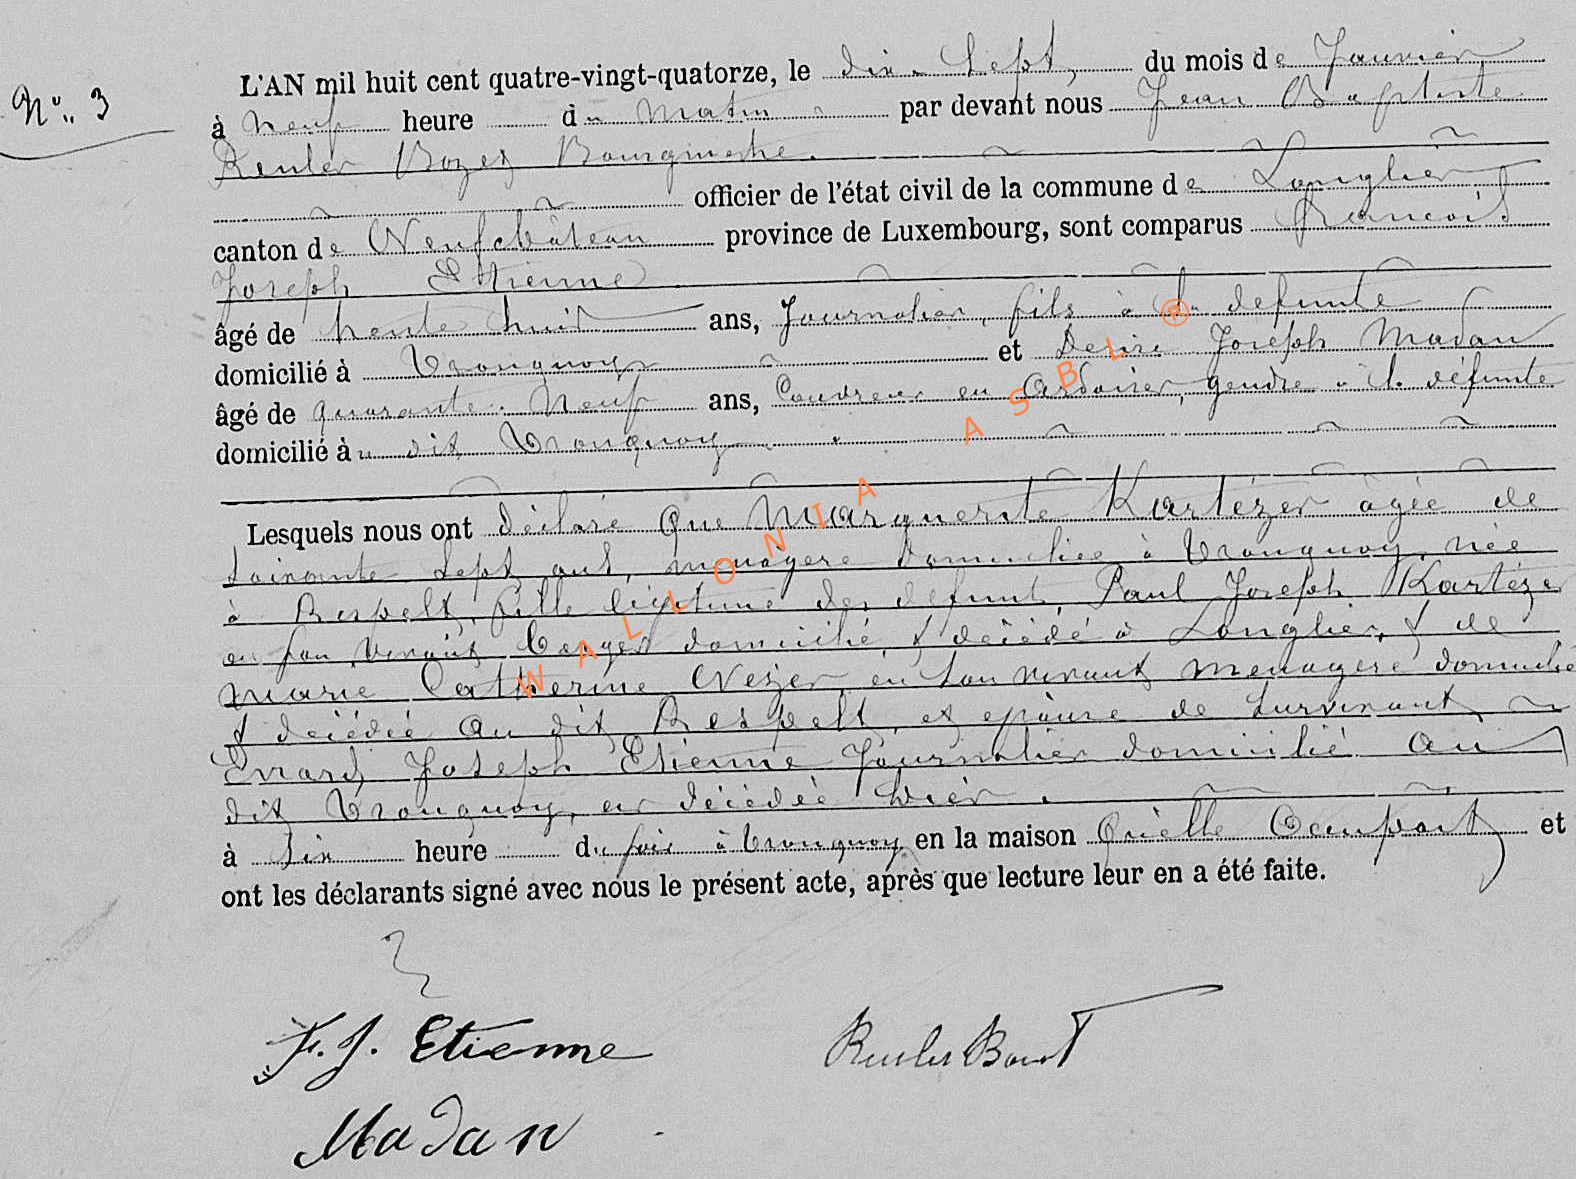 N° 3
L'AN mil huit cent quatre-vingt-quatorze, le dix-sept, du mois de Janvier
à Neuf heure du Matin par devant nous Jean Baptiste
Reuler Bourgmestre.
officier de l'état civil de la commune de Longlier
canton de Neufchâteau province de Luxembourg, sont comparus Francois
Joseph Etienne
âgé de trente huit ans, Journalier, fils à la defunte
domicilié à Tronquoy et Desiré Joseph Madan
âgé de quarante-Neuf ans, Couvreur en Ardoises, gendre à la défunte
domicilié au dit Tronquoy
Lesquels nous ont déclaré Que Marguerite Kartézer agée de
soixante sept ans, menagere domiciliée à Tronquoy, née
à Respelt, fille légitime des defunts, Paul Joseph Kartézer
en son vivant domicilié, & décédé à Longlier, & de
Marie Catherine en son vivant menagere domicilié
& décédée au dit Respelt, et epouse de survivant
Errard Joseph Etienne Journalier domicilié au
dit Tronquoy, est décédée hier.
à six heure du soir à Tronquoy en la maison Qu'elle Occupait et
ont les déclarants signé avec nous le présent acte, après que lecture leur en a été faite.
F. J. Etienne
Madan
WALLONIA ASBL ®